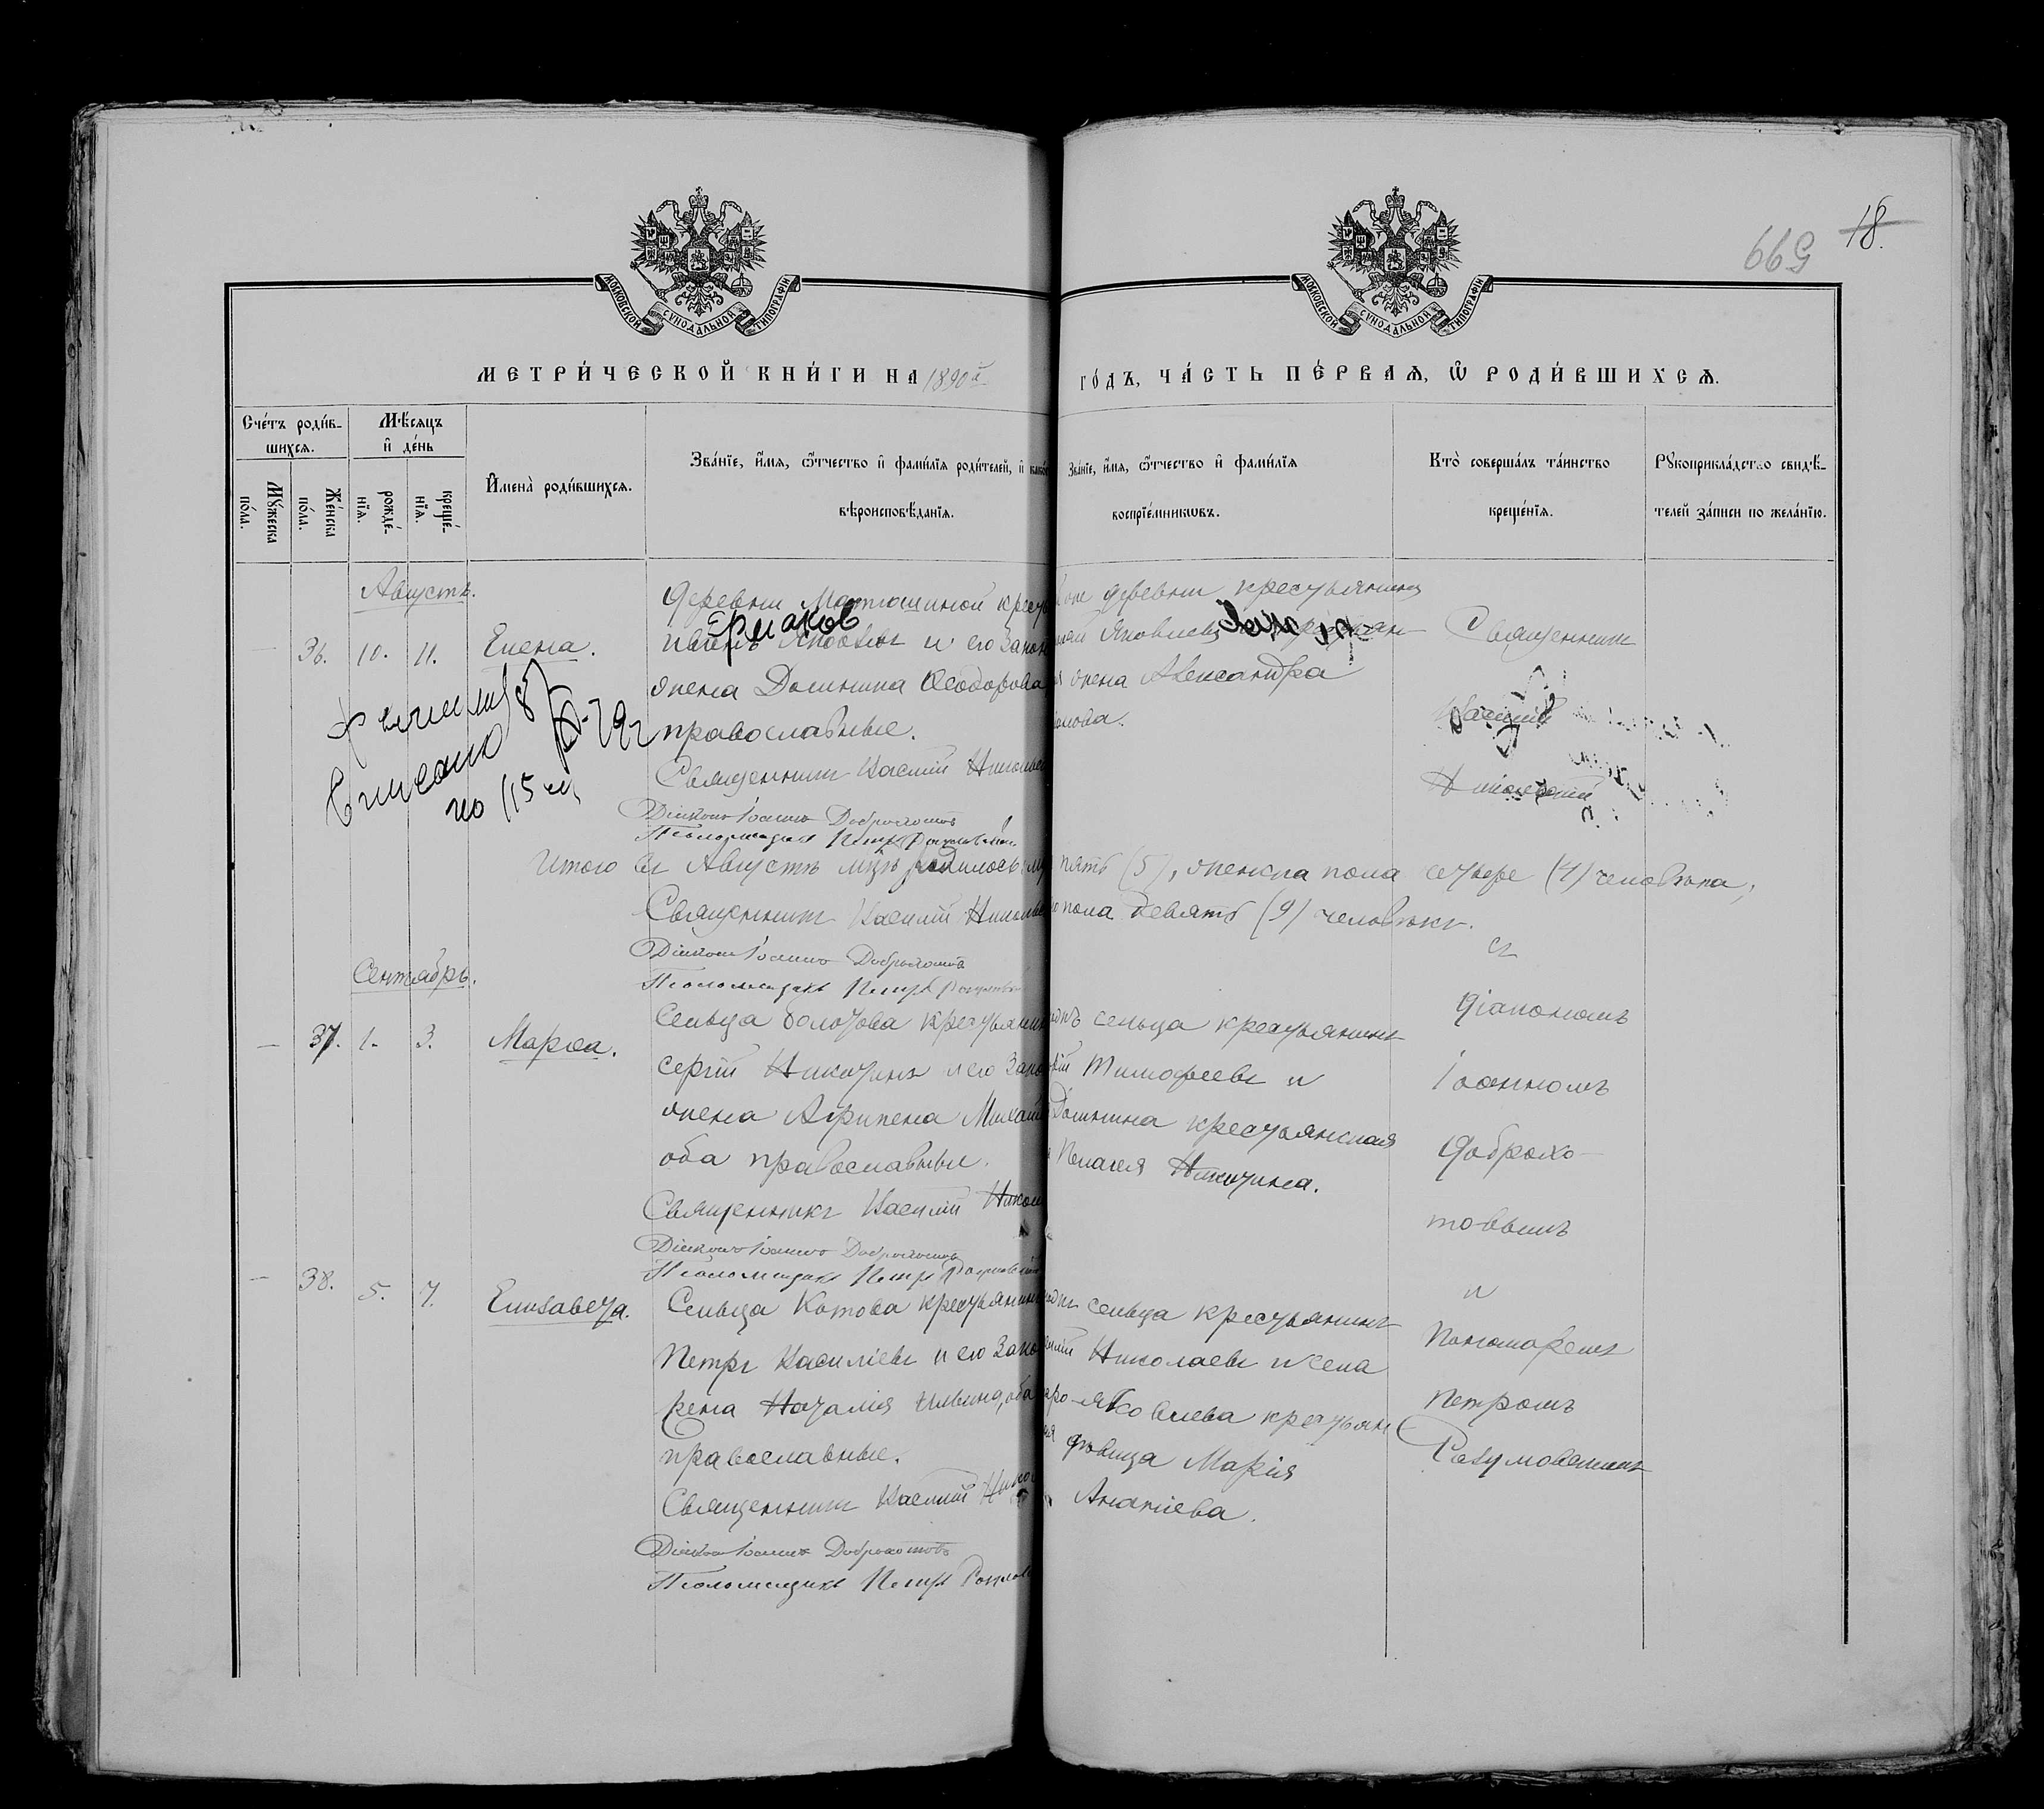 18.
599
МОСКОВСКОЙ СѴНОДАЛЬНОЙ ТИПОГРАФІИ
МОСКОВСКОЙ СѴНОДАЛЬНОЙ ТИПОГРАФІИ
МЕТРИ́ЧЕСКОЙ КНИ́ГИ НА 1890й
ГО́ДЪ, ЧА́СТЬ ПЕ́РВАѦ, Ѡ РОДИ́ВШИХСѦ.
Сче́тъ роди́в-
шихсѧ.
Мꙋ́жеска по́ла.
Же́нска по́ла.
Мѣ́сѧцъ
и҆ де́нь
рожде́-
нїѧ.
креще́-
нїѧ.
И҆мена̀ роди́вшихсѧ.
Зва́нїе, и҆́мѧ, ѻ҆́тчество и҆ фами́лїѧ роди́телей, и҆ како́
вѣроисповѣ́данїѧ.
Зва́нїе, и҆́мѧ, ѻ҆́тчество и҆ фами́лїѧ
воспрїе́мникѡвъ.
Кто̀ соверша́лъ та́инство
креще́нїѧ.
Рꙋкоприкла́дство свидѣ́-
телей за́писи по жела́нїю.
Августъ.
36. 10. 11. Елена.
деревни Матюшиной крест
Ермаков
Яковлевъ и его закон
жена Домнина Ѳеодорова
православные.
Священникъ Василій Николь
Діаконъ Іоаннъ Доброхотовъ
Псаломщикъ Петръ
деревни крестьянинъ
Яковлевъ
жена Александра
Священникъ
Василій
Никольскій
по 115 м
Итого въ Августѣ родилось
пять (5), женска пола четыре (4) человѣка,
Священникъ Василій Николь
пола девять (9) человѣкъ.
Діаконъ Іоаннъ Доброхотовъ
Псаломщикъ Петръ
Сентябрь.
37. 1. 3. Марѳа.
сельца Болотова крестьянинъ
Сергій Никитинъ и его зако
жена Агрипена Михаил
оба православные.
Священникъ Василій Никол
Діаконъ Іоаннъ Доброхотовъ
Псаломщикъ Петръ
сельца крестьянинъ
Тимофеевъ и
Домнина крестьянская
Пелагея Никитина.
съ
Діакономъ
Іоанномъ
Доброхо-
товымъ
и
Пономаремъ
Петромъ
Разумовскимъ
38. 5. 7. Елизавета.
Сельца Котова крестьянин
Петръ Василіевъ и его зако
жена Наталія оба
православные.
Священникъ Василій Нико
Діаконъ Іоаннъ Доброхотовъ
Псаломщикъ Петръ
сельца крестьянинъ
Николаевъ и села
Яковлева крестьян
дѣвица Марія
Ананіева.